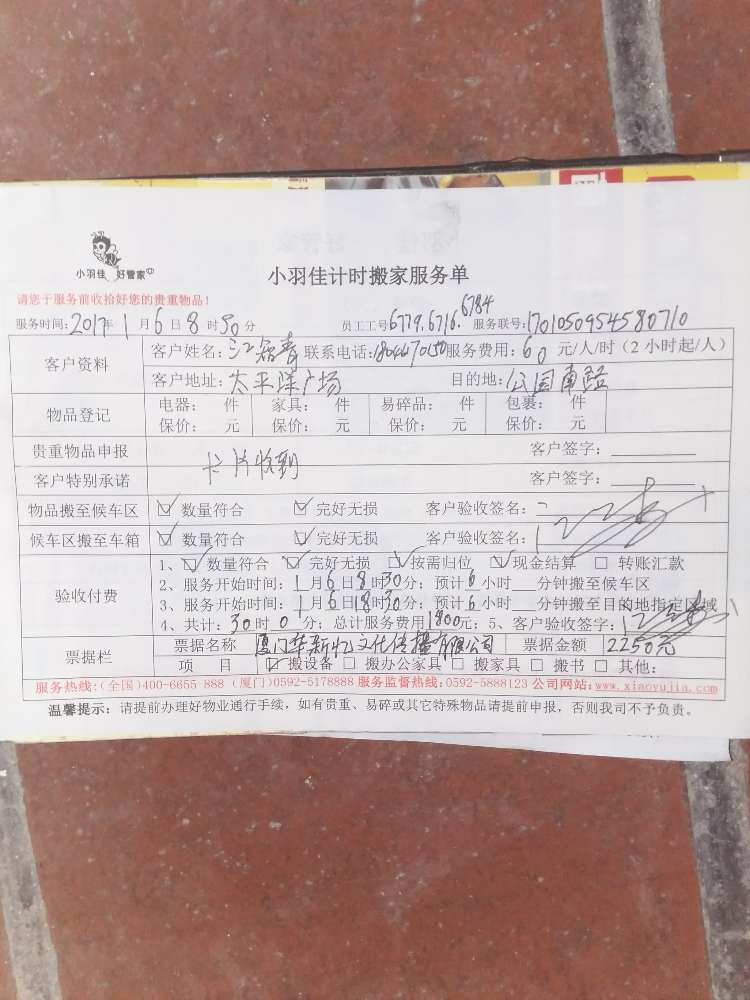 小羽佳 好管家
小羽佳计时搬家服务单
请您于服务前收拾好您的贵重物品！
服务时间：2017年1月6日8时30分 员工工号6779.6716.6784 服务联号：170105095458 0710
客户资料 客户姓名： 联系电话： 服务费用：60元/人/时（2小时起/人）
客户地址：太平洋广场 目的地：公园南路
物品登记 电器： 件 家具： 件 易碎品： 件 包裹： 件
保价： 元 保价： 元 保价： 元 保价： 元
贵重物品申报 客户签字：
卡片收到
客户特别承诺 客户签字：
物品搬至候车区 ☑ 数量符合 ☑ 完好无损 客户验收签名：
候车区搬至车箱 ☑ 数量符合 ☑ 完好无损 客户验收签名：
验收付费 1、☑ 数量符合 ☑ 完好无损 ☑ 按需归位 ☑ 现金结算 □ 转账汇款
2、服务开始时间：1月6日8时30分；预计6小时 分钟搬至候车区
3、服务开始时间：1月6日18时30分；预计6小时 分钟搬至目的地指定区域
4、共计：30时0分；总计服务费用1800元；5、客户验收签字：
票据栏 票据名称 厦门华新忆文化传播有限公司 票据金额 2250元
项 目 ☑ 搬设备 □ 搬办公家具 □ 搬家具 □ 搬书 □ 其他：
服务热线：（全国）400-6655 888（厦门）0592-5178888 服务监督热线：0592-5888123 公司网站：www.xiaoyujia.com
温馨提示：请提前办理好物业通行手续，如有贵重、易碎或其它特殊物品请提前申报，否则我司不予负责。